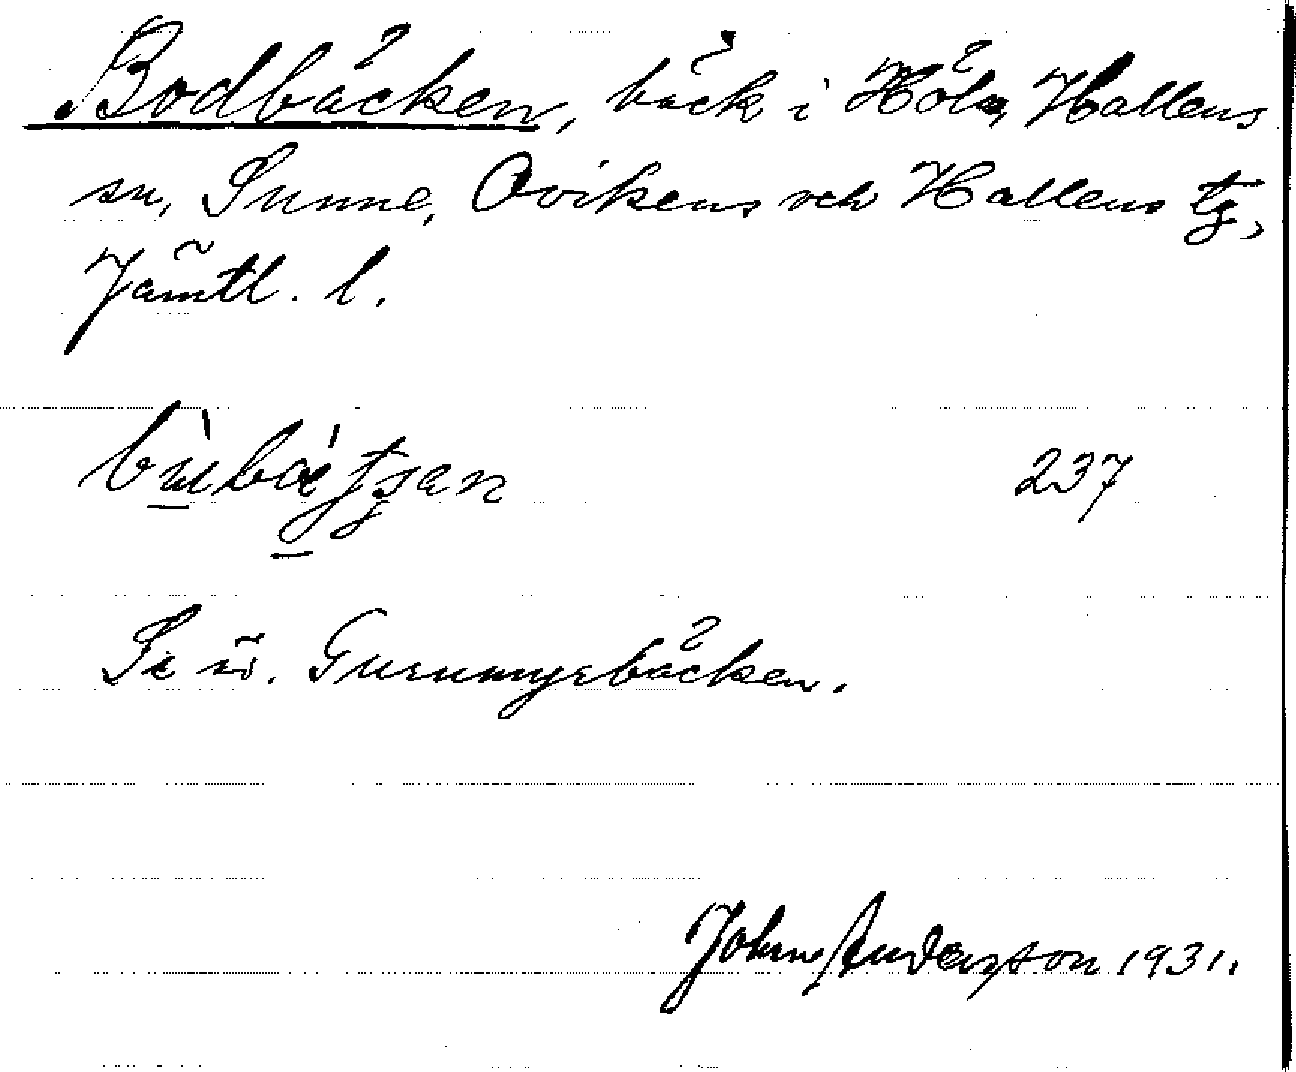 Bodbäcken, bäck i Höla, Hallens
sn, Sunne, Ovikens och Hallens tg,
Jämtl. l.
237
Se ü. Gurumyrbäcken.
John Anderson 1931.